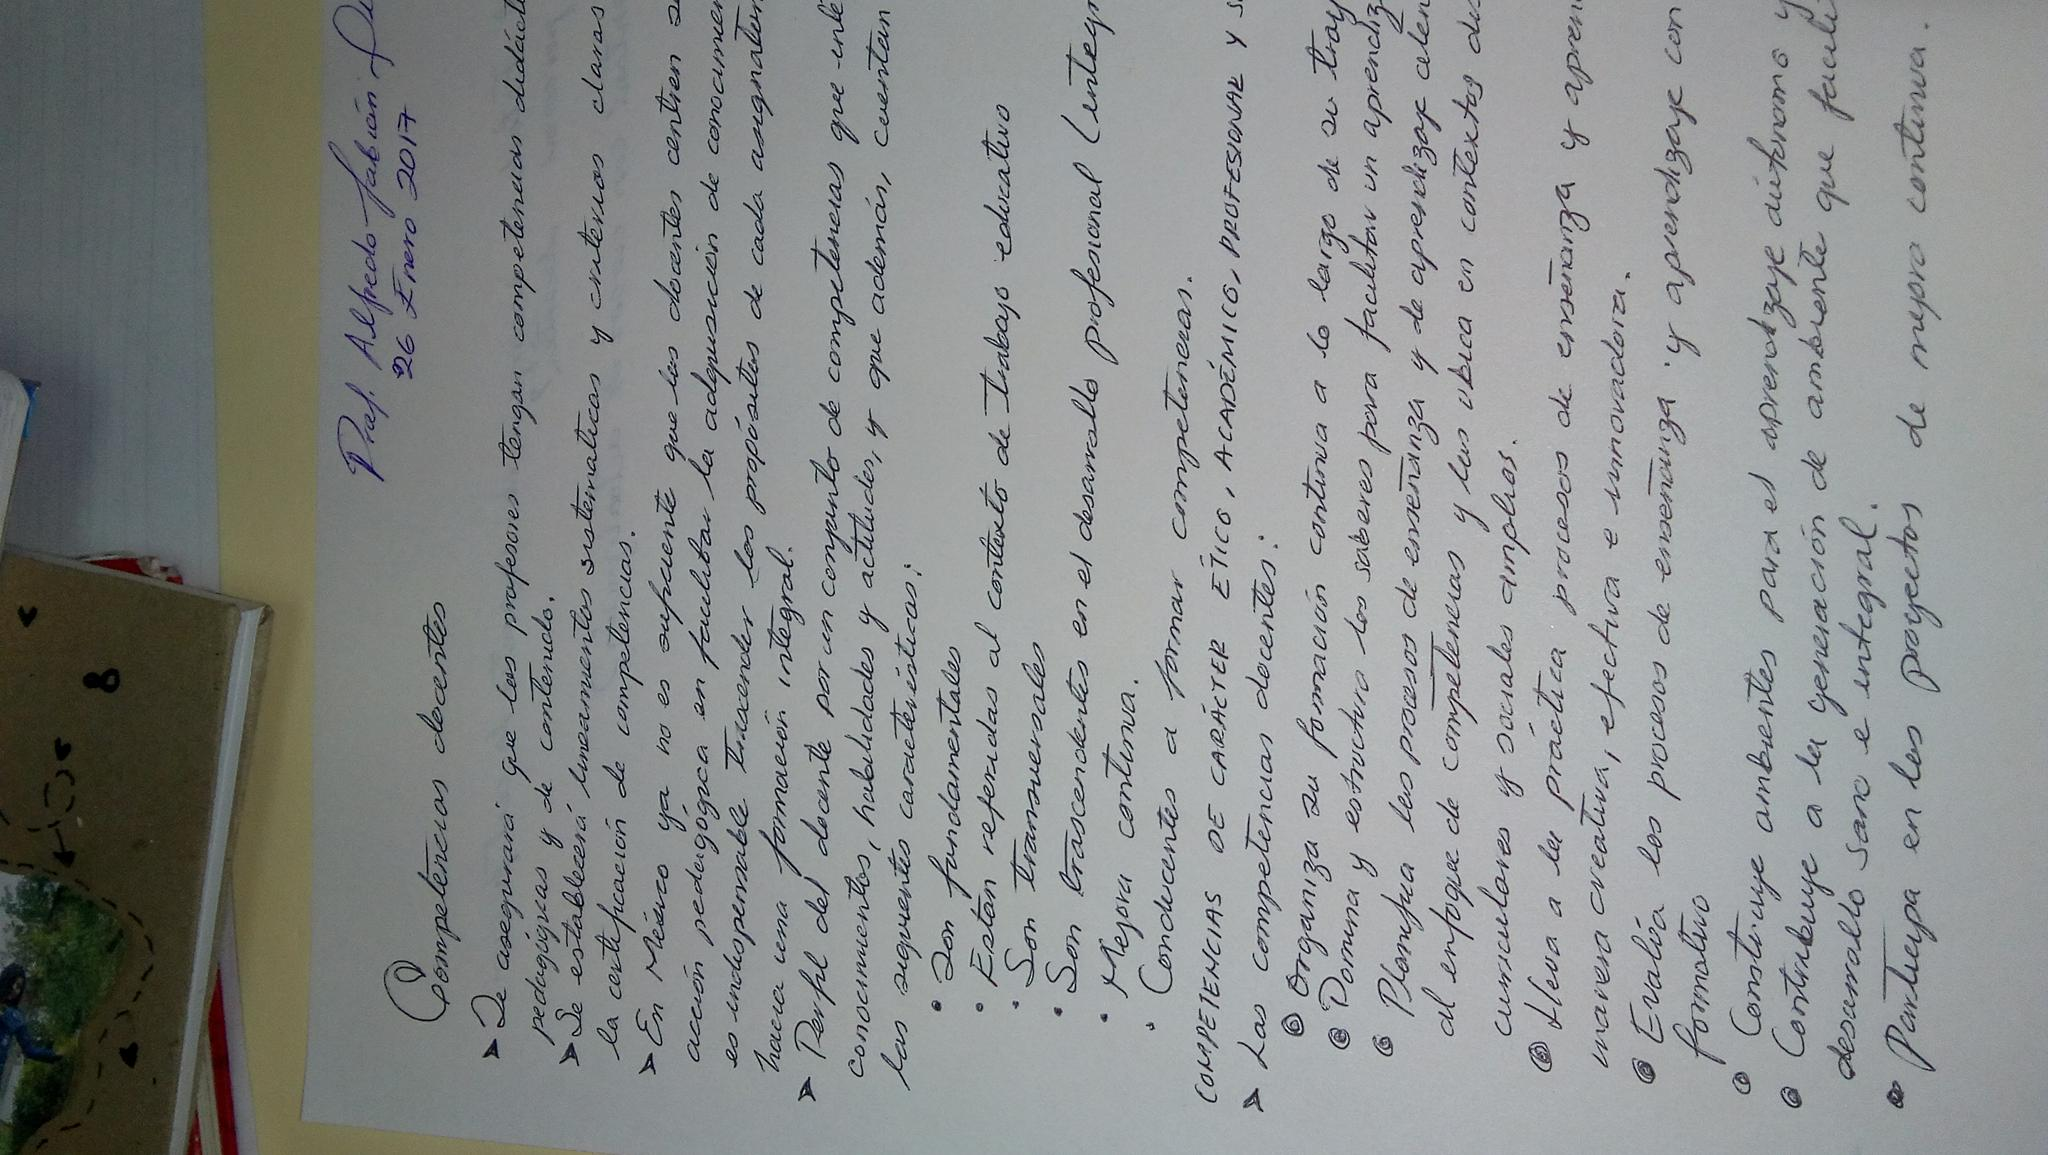 Prof. Alfredo Fabián
26 Enero 2017
Competencias docentes
➤ Se asegurará que los profesores tengan competencias didáct
pedagógicas y de contenido.
➤ Se establecerá lineamientos sistematicos y criterios claros
la certificación de competencias.
➤ En México ya no es suficiente que los docentes centren su
acción pedagógica en facilitar la adquisición de conocimien
es indispensable trascender los propósitos de cada asignatura
hacia una formación integral.
➤ Perfil del docente por un conjunto de competencias que inte
conocimientos, habilidades y actitudes, y que además, cuentan
las siguientes características:
• Son fundamentales
• Estan referidas al contexto de trabajo educativo
• Son transversales
• Son trascendentes en el desarrollo profesional (integr
• Mejora continua.
• Conducentes a formar competencias.
COMPETENCIAS DE CARÁCTER ÉTICO, ACADÉMICO, PROFESIONAL Y S
➤ Las competencias docentes:
Organiza su formación continua a lo largo de su tray
Domina y estructura los saberes para facilitar un aprendiz
Planifica los procesos de enseñanza y de aprendizaje aten
al enfoque de competencias y los ubica en contextos dis
curriculares y sociales amplios.
Lleva a la práctica procesos de enseñanza y apren
manera creativa, efectiva e innovadora.
Evalúa los procesos de enseñanza y aprendizaje con
formativo
Construye ambientes para el aprendizaje autónomo y
Contribuye a la generación de ambiente que facili
desarrollo sano e integral.
Participa en los proyectos de mejora continua.
8